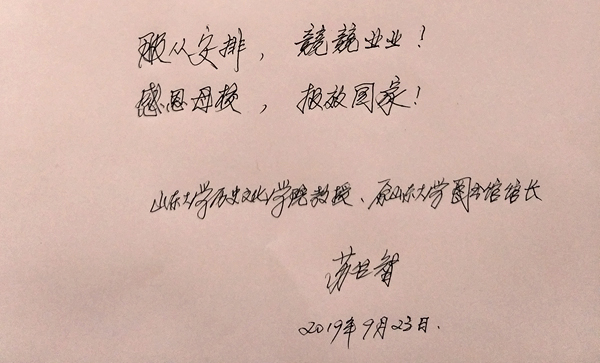 服从安排，兢兢业业！
感恩母校，报效国家！
山东大学历史文化学院教授、原山东大学图书馆馆长
苏位智
2019年9月23日.